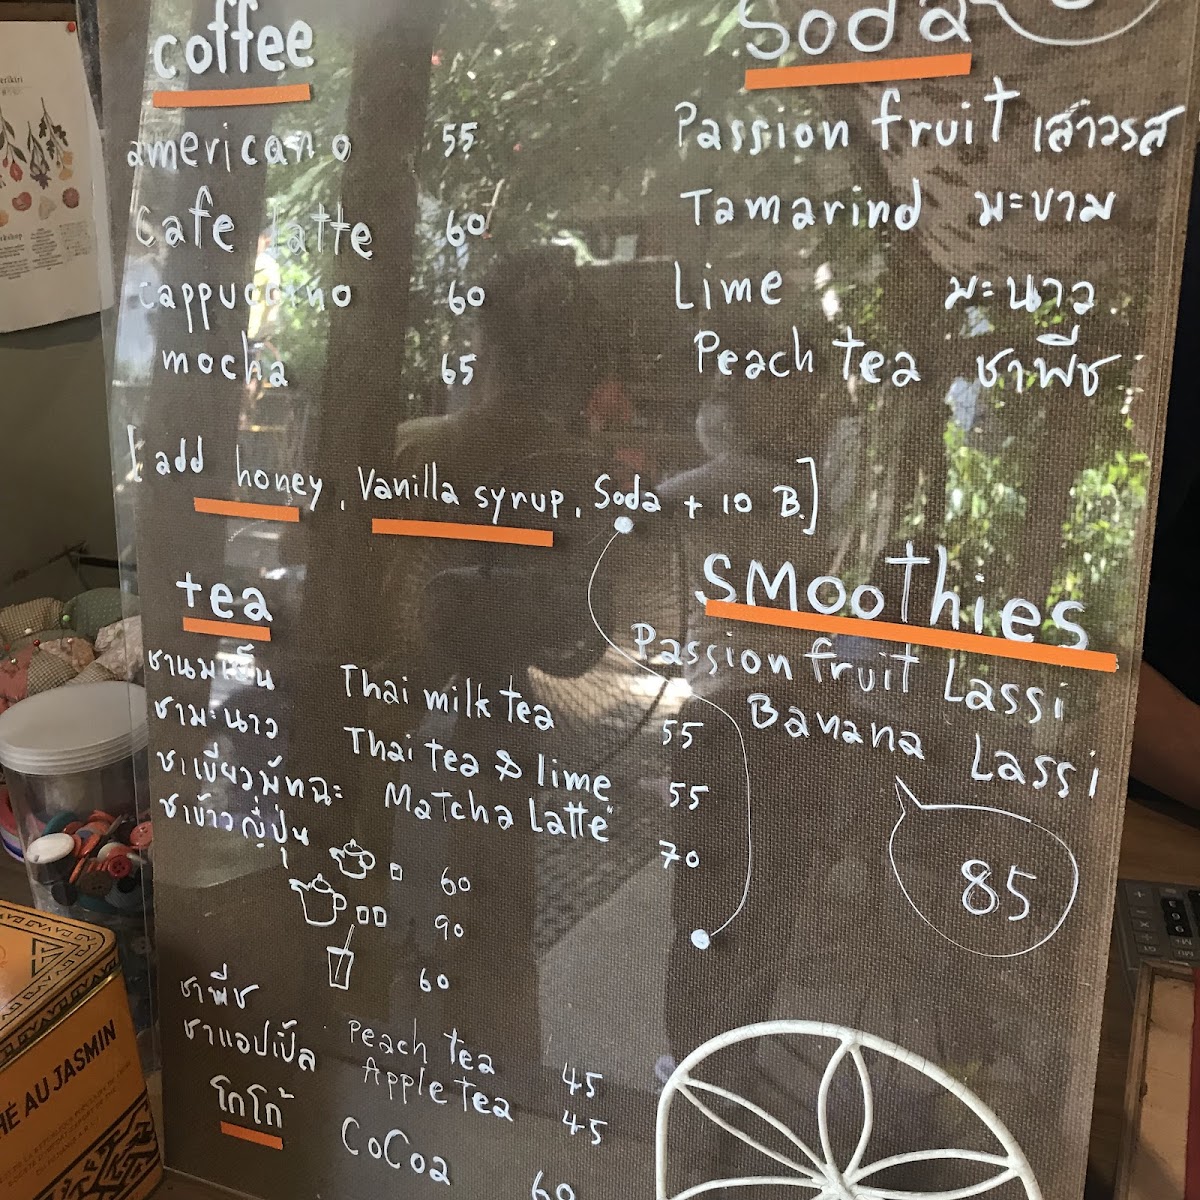 coffee
americano 55
Cafe latte 60
cappuccino 60
mocha 65
[add honey, Vanilla syrup, Soda + 10 B.]
tea
ชานมเย็น Thai milk tea 55
ชามะนาว Thai tea & lime 55
ชาเขียวมัทฉะ Matcha Latte 70
ชาข้าวญี่ปุ่น
60
90
60
ชาพีช Peach tea 45
ชาแอปเปิ้ล Apple tea 45
โกโก้ CoCoa 60
Soda
Passion fruit เสาวรส
Tamarind มะขาม
Lime มะนาว
Peach tea ชาพีช
SMoothies
Passion fruit Lassi
Banana Lassi
85
THÉ AU JASMIN